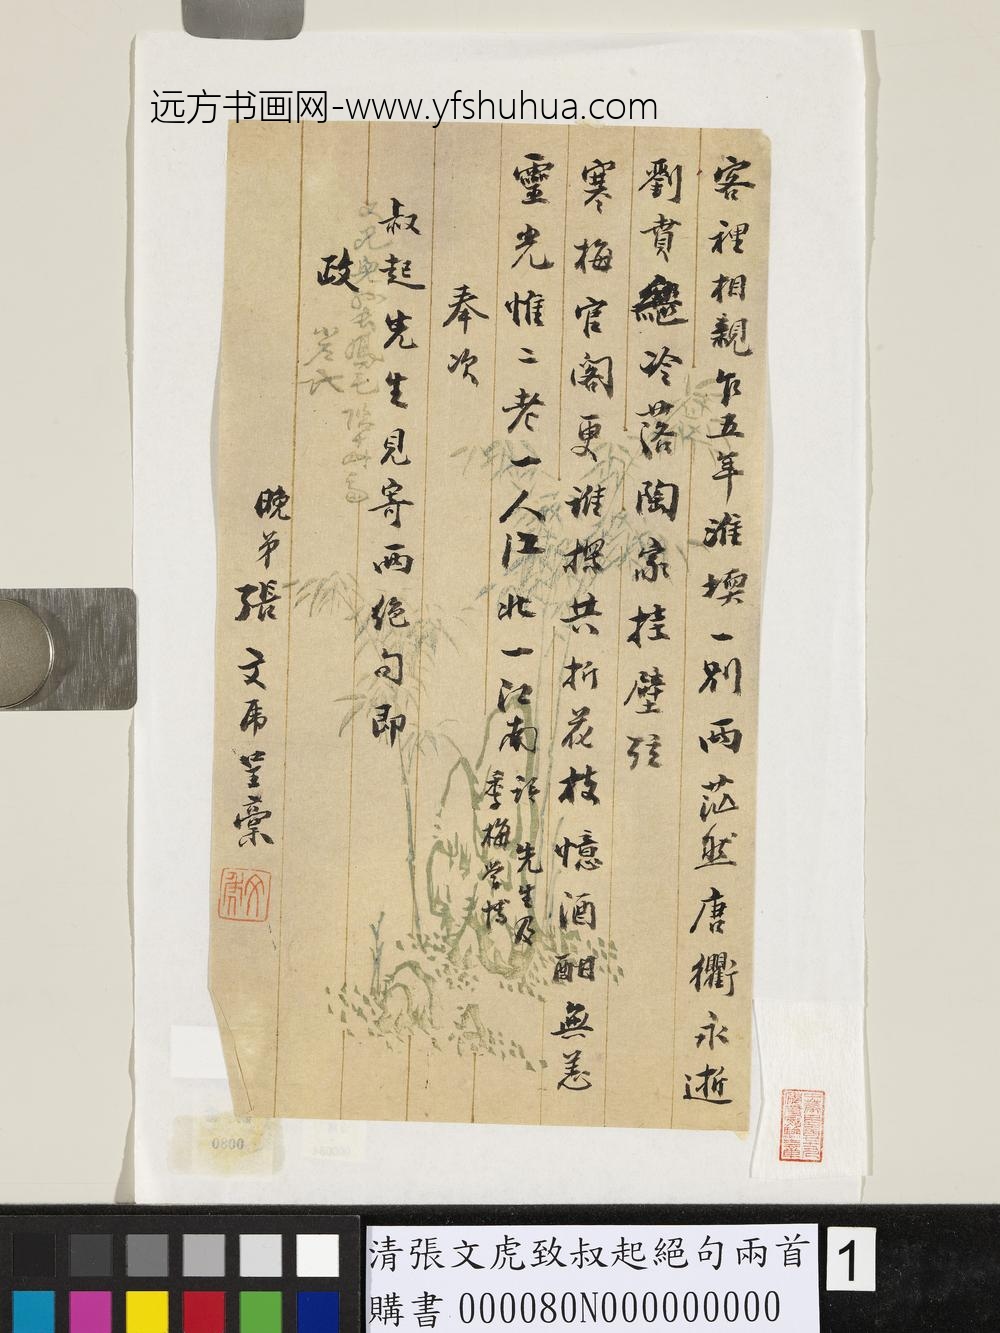 远方书画网-www.yfshuhua.com
客裡相親乍五年淮堧一別兩茫然唐衢永逝
劉蕡繼冷落陶家挂壁弦
寒梅官閣更誰探共折花枝憶酒酣無恙
靈光惟二老一人江北一江南
先生及
季梅
奉次
叔起先生見寄兩絕句即
政
晚弟張文虎呈稾
文虎
0800
清張文虎致叔起絕句兩首
購書 000080N000000000
1